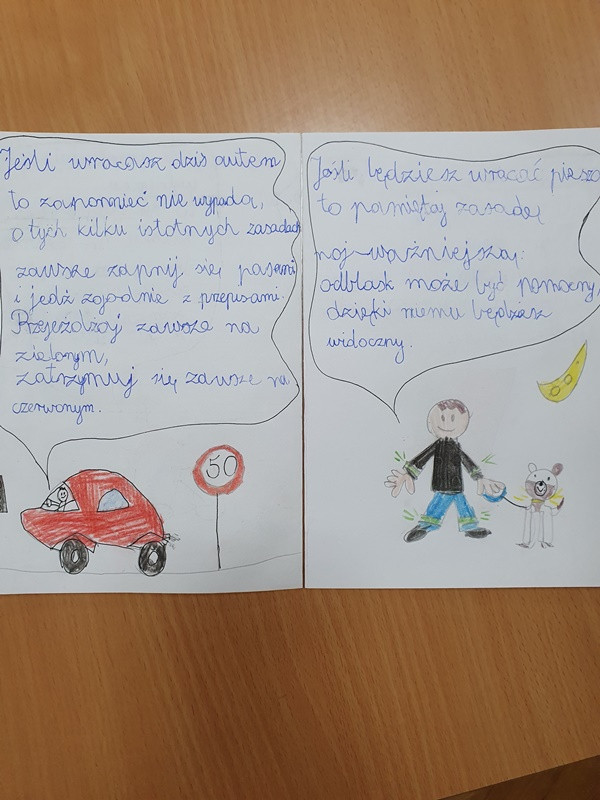 Jeśli wracasz dziś autem
to zapomnieć nie wypada,
o tych kilku istotnych zasadach
zawsze zapnij się pasami
i jedź zgodnie z przepisami.
Przejeżdżaj zawsze na
zielonym,
zatrzymuj się zawsze na
czerwonym.
50
Jeśli będziesz wracać pieszo
to pamiętaj zasadę
najważniejszą:
odblask może być pomocny,
dzięki niemu będziesz
widoczny.